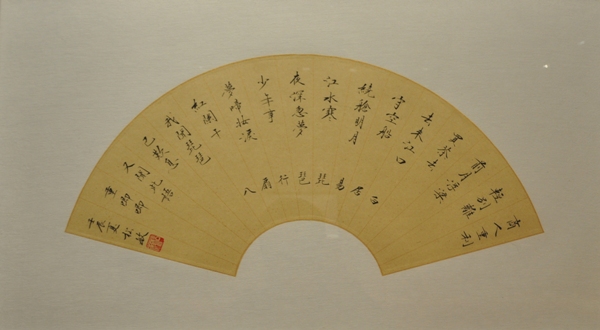 商人重利
輕别離
前月浮梁
買茶去
去来江口
守空船
繞艙明月
江水寒
夜深忽夢
少年事
夢啼妝淚
紅闌干
我聞琵琶
已歎息
又聞此語
重唧唧
壬辰夏
白居易琵琶行扇八